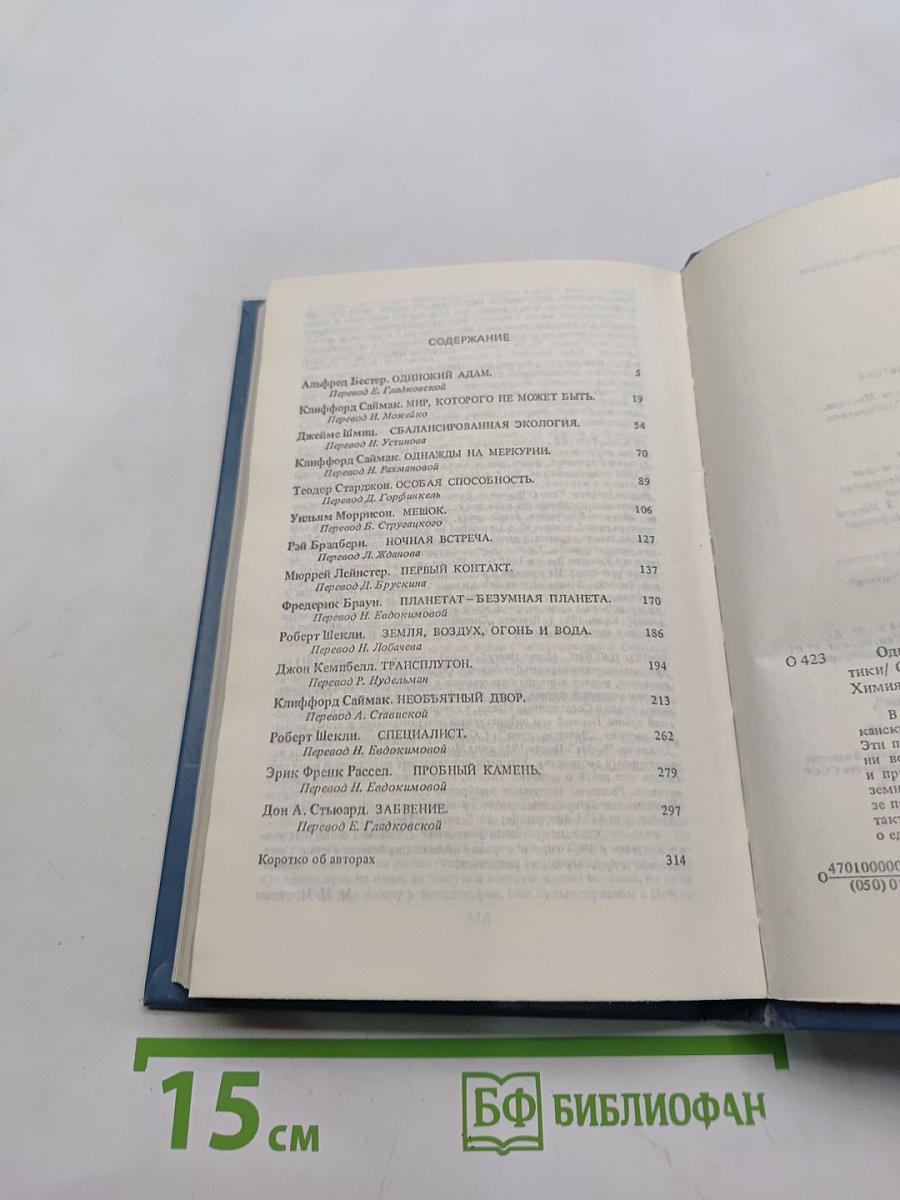 СОДЕРЖАНИЕ
Альфред Бестер. ОДИНОКИЙ АДАМ. 5
Перевод Е. Гладковской
Клиффорд Саймак. МИР, КОТОРОГО НЕ МОЖЕТ БЫТЬ. 19
Перевод И. Можейко
Джеймс Шмиц. СБАЛАНСИРОВАННАЯ ЭКОЛОГИЯ. 54
Перевод Н. Устинова
Клиффорд Саймак. ОДНАЖДЫ НА МЕРКУРИИ. 70
Перевод Н. Рахмановой
Теодор Старджон. ОСОБАЯ СПОСОБНОСТЬ. 89
Перевод Д. Горфинкель
Уильям Моррисон. МЕШОК. 106
Перевод Б. Стругацкого
Рэй Брэдбери. НОЧНАЯ ВСТРЕЧА. 127
Перевод Л. Жданова
Мюррей Лейнстер. ПЕРВЫЙ КОНТАКТ. 137
Перевод Д. Брускина
Фредерик Браун. ПЛАНЕТАТ – БЕЗУМНАЯ ПЛАНЕТА. 170
Перевод Н. Евдокимовой
Роберт Шекли. ЗЕМЛЯ, ВОЗДУХ, ОГОНЬ И ВОДА. 186
Перевод Н. Лобачева
Джон Кемпбелл. ТРАНСПЛУТОН. 194
Перевод Р. Нудельман
Клиффорд Саймак. НЕОБЪЯТНЫЙ ДВОР. 213
Перевод А. Ставиской
Роберт Шекли. СПЕЦИАЛИСТ. 262
Перевод Н. Евдокимовой
Эрик Френк Рассел. ПРОБНЫЙ КАМЕНЬ. 279
Перевод Н. Евдокимовой
Дон А. Стьюард. ЗАБВЕНИЕ. 297
Перевод Е. Гладковской
Коротко об авторах 314
О 423
тики/
Химия
В
кански
Эти п
ни во
и пр
земн
зе п
такт
о ед
О 470100000
(050) 0
15 см
БФ БИБЛИОФАН